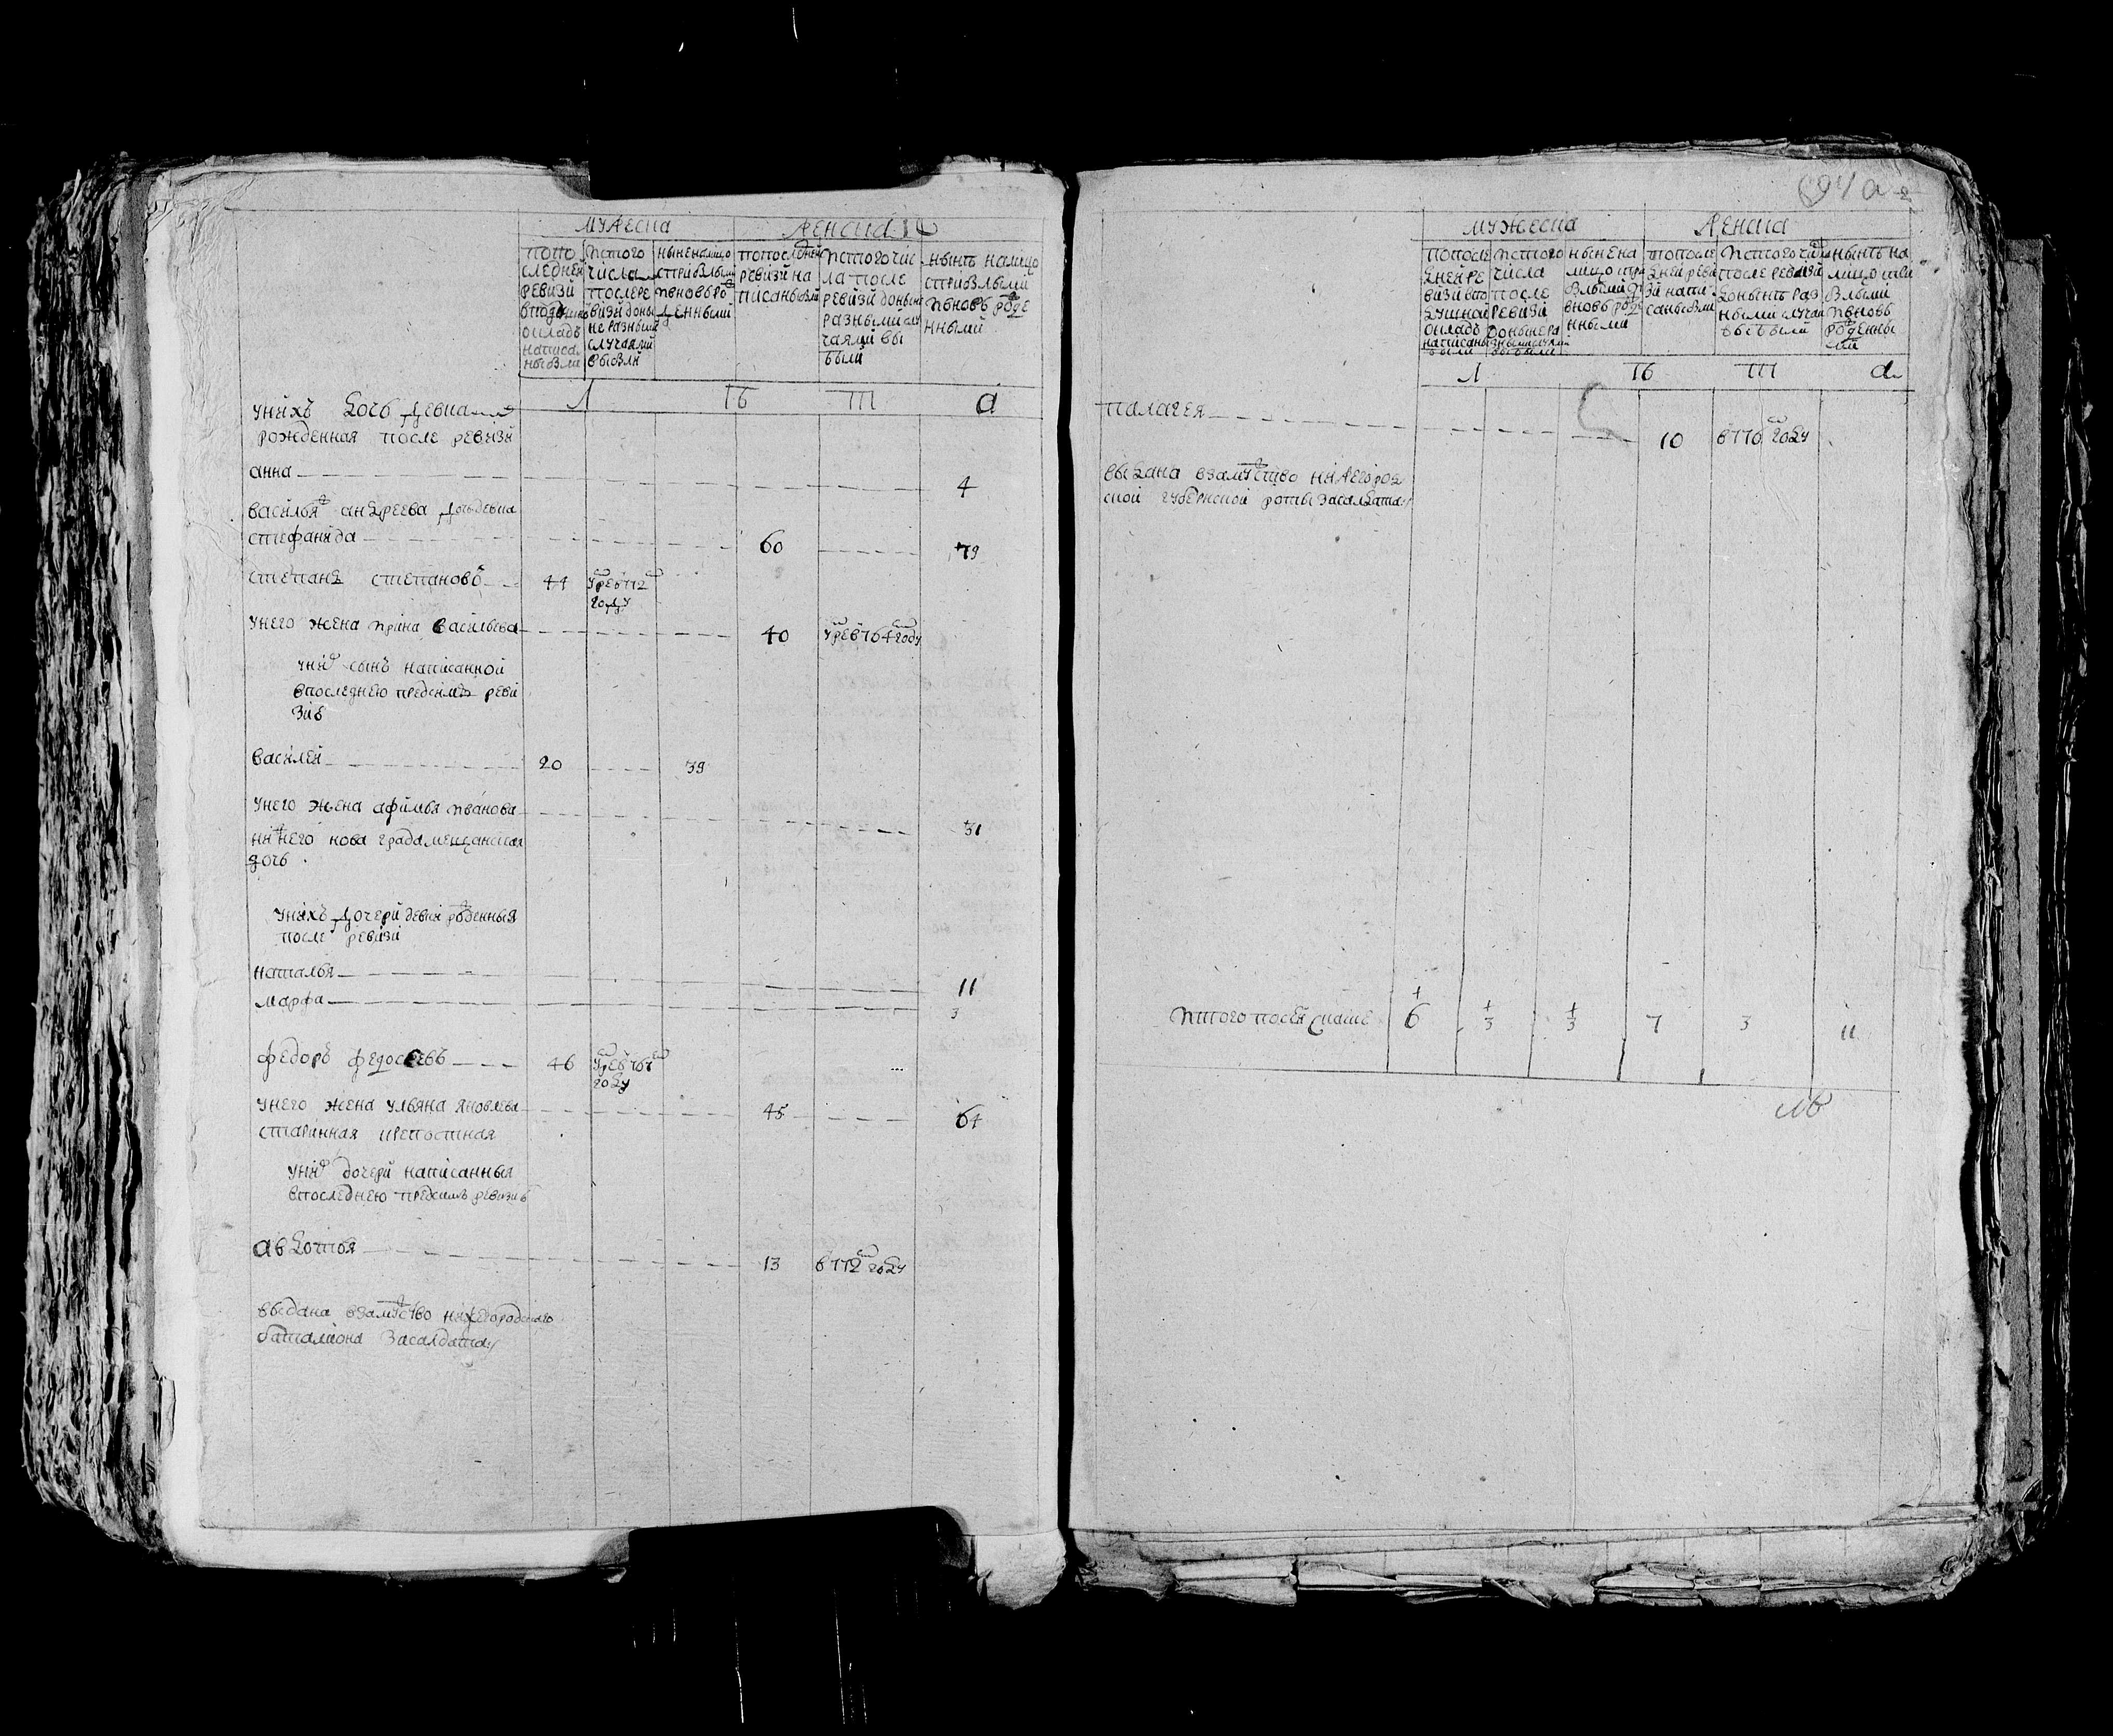 мужеска
женска
попо
следней
ревизи
вподушно
окладъ
написа
ныбыли
истого
числа
послере
визи доны
не разными
случаями
выбыли
ныненалицо
сприбылыми
ивновь ро
жденными
попоследней
ревизи на
писаныбыли
истогочис
ла после
ревизи доныне
разными слу
чаями вы
были
ныне налицо
сприбылыми
ивновь роже
нными
унихъ дочь девка
рожденная после ревизи
анна 4
василья андреева дочьдевка
стефанида 60 79
степанъ степановъ 44 умре в 772
году
унего жена ирина васильева 40 умре в 764 году
уних сынъ написанной
впоследнею предсимъ реви
зию
василей 20 39
унего жена афимья иванова 31
нижнего нова града мещанская
дочь
унихъ дочери девки роженныя
после ревизи
наталья 11
марфа 3
федоръ федосеевъ 46 умре в 767
году
унего жена ульяна яковлева 45 64
старинная крепостная
уних дочери написанныя
впоследнею предсимъ ревизию
авдотья 13 в 772 году
выдана взамуство нижегородскаго
баталиона засалдата
мужеска
женска
попосле
дней ре
визи впо
душной
окладъ
написаны
были
истого
числа
после
ревизи
доныне ра
зными случаями
выбыли
ныне на
лицо при
былыми и
вновь роже
нными
попосле
дней реви
зи напи
саныбыли
истого числа
после ревизи
доныне раз
ными случаи
выбыли
ныне на
лицо при
былыми
ивновь
рожденны
ми
палагея 10 в 770 году
выдана взамуство нижегород
ской губернской роты засалдата
итого посей скаске 6 3 3 7 3 11